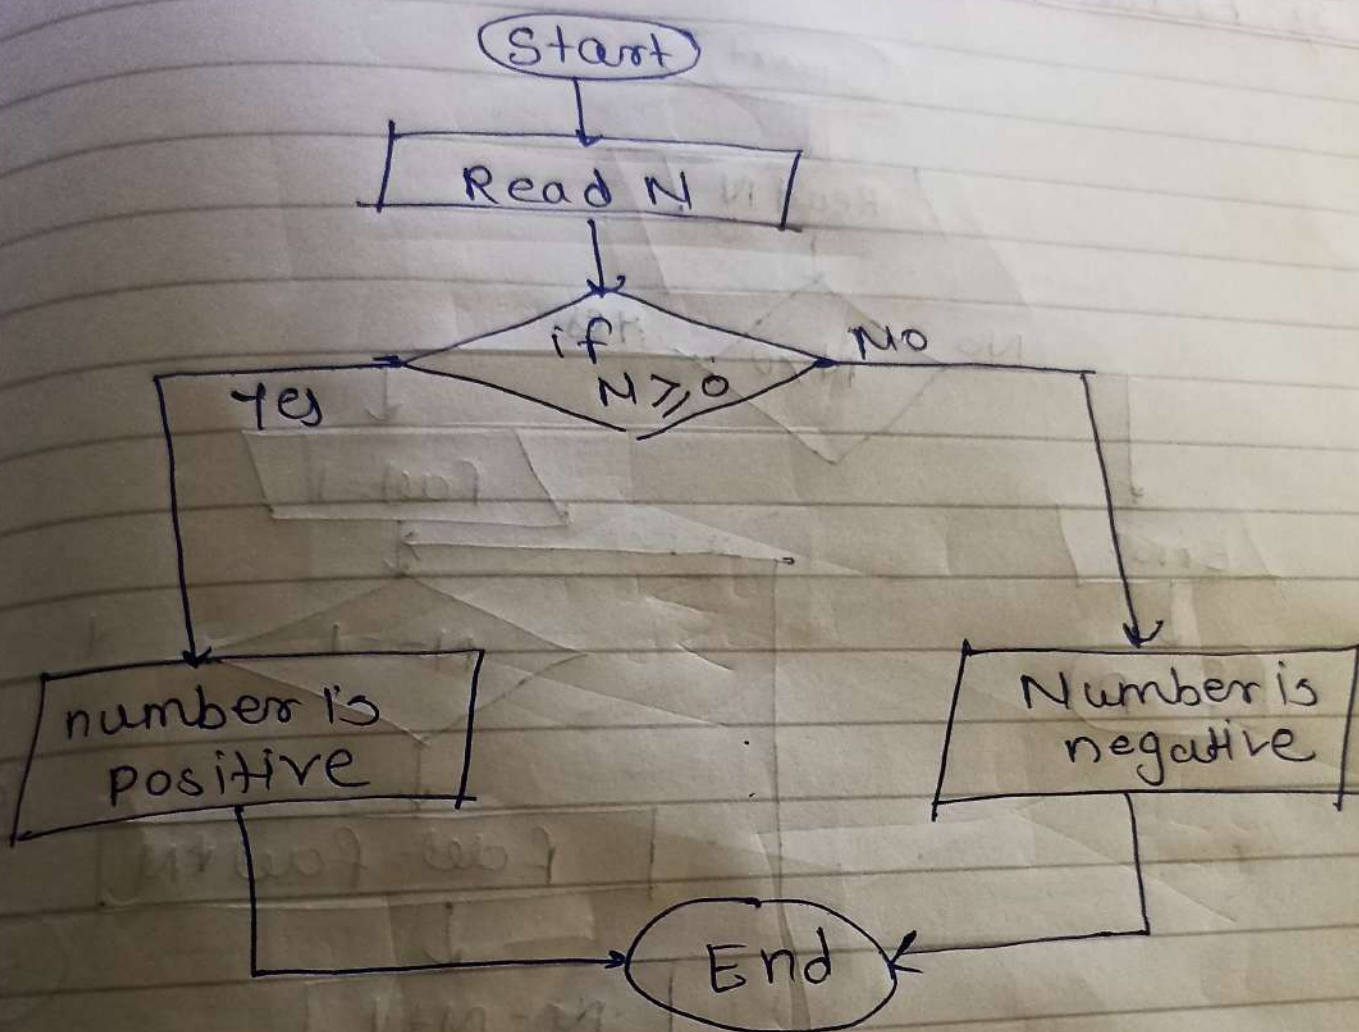 Start
Read N
if
N ⩾ 0
Yes
No
number is
positive
Number is
negative
End